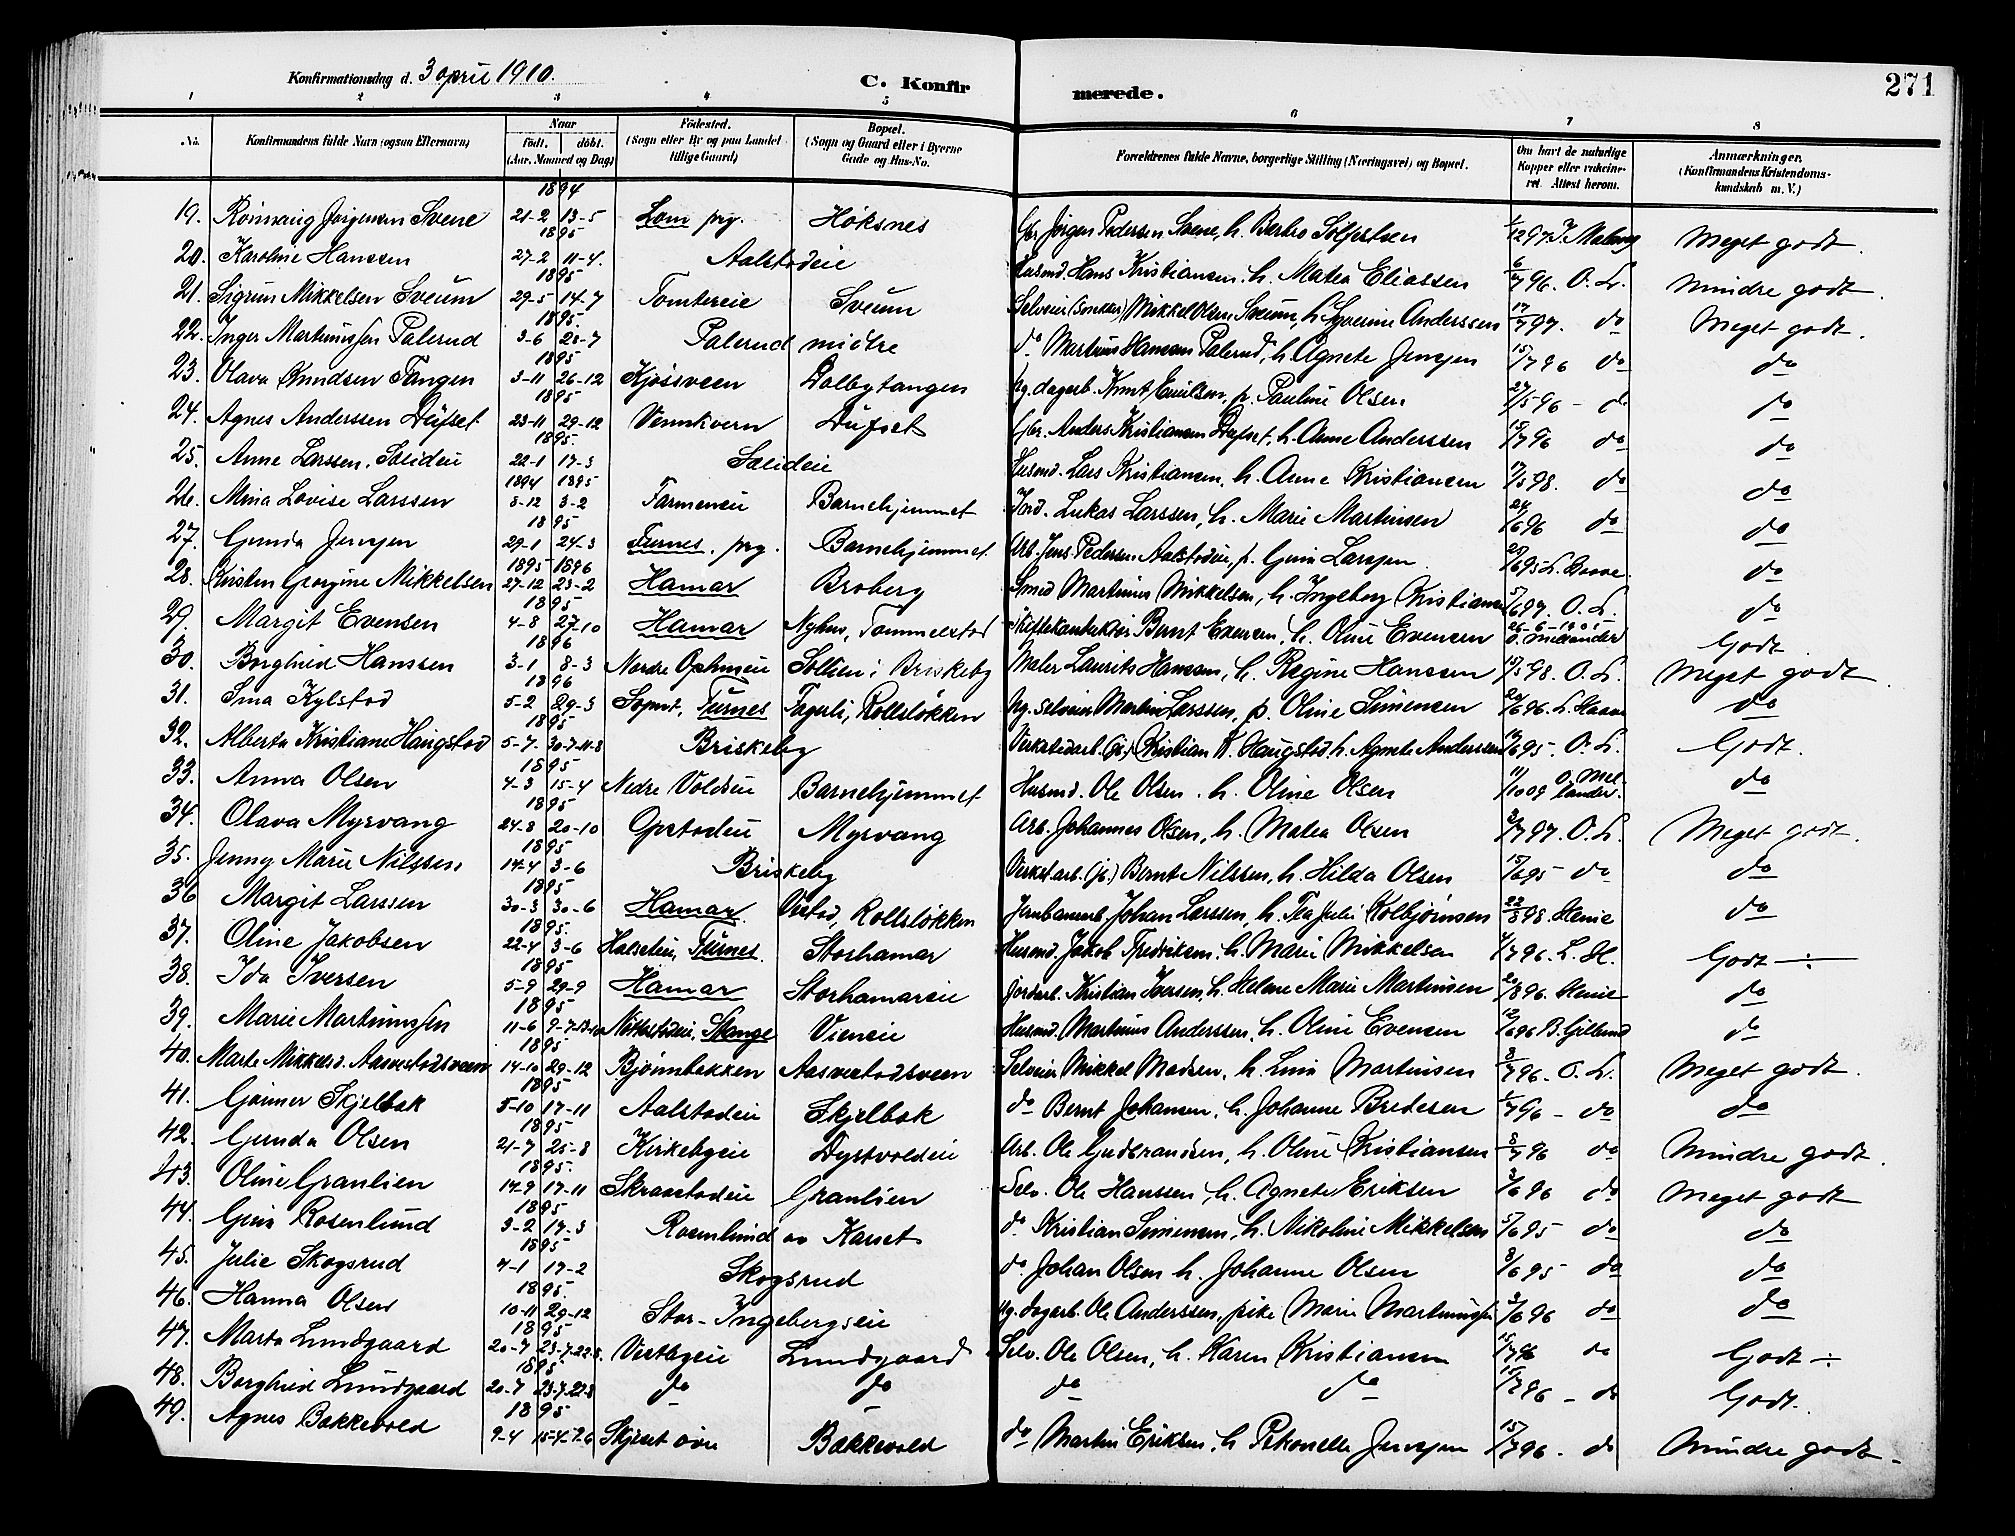 271
Konfirmationsdag d. 3 april 1910.
C. Konfirmerede.
1 2 3 4 5 6 7 8
No. Konfirmandens fulde Navn (ogsaa Efternavn) Naar født. døbt. (Aar, Maaned og Dag) Fødested. (Sogn eller By og paa Landet tillige Gaard) Bopæl. (Sogn og Gaard eller i Byerne Gade og Hus-No.) Forældrenes fulde Navne, borgerlige Stilling (Næringsvei) og Bopæl. Om havt de naturlige Kopper eller vaksineret. Attest herom. Anmærkninger. (Konfirmandens Kristendomskundskab m. V.)
1894
19. Rønnaug Jørgensen Svene 21-2 13-5 Lom prg. Høksnes Gbr. Jørgen Pedersen Svene, h. Berthe 1/12 97 Meget godt.
1895
20. Karoline Hanssen 27-2 11-4. Aalstadeie Husmd. Hans Kristiansen, h. Matea Eliassen 6/7 96. O. L. Mindre godt.
1895
21. Sigrun Mikkelsen Sveum 29-5 14-7 Tomtereie Sveum Selveier Mikkel Olsen Sveum, h. Syverine Anderssen 17/7 97. do Meget godt.
1895
22. Inger Martinussen Palerud 3-6 28-7 Palerud midtre do Martinus Hansen Palerud, h. Agnete Jenssen 15/7 96 do do
1895
23. Olava Knudsen Tangen 3-11 26-12 Kjøssveen Dolbytangen Ug. dagarb. Knut Emilsen, p. Pauline Olsen 27/5 96 - do do
1895
24. Agnes Anderssen Dufset 23-11 29-12 Vennkvern Dufset Gbr. Anders Kristiansen Dufset, h. Anne Anderssen 15/7 96 do do
1895
25. Anne Larssen, Solideie 22-1 17-3 Solideie Husmd. Lars Kristiansen, h. Anne Kristiansen 98. do do
1894 1895
26. Mina Lovise Larssen 8-12 3-2 Farmeneie Barnehjemmet Lukas Larssen, h. Marie Martinsen 24/6 96 do do
1895
27. Gunda Jenssen 29-1 24-3 Furnes. prg. Barnehjemmet Arb. Jens Pedersen Aalstadeie, p. Larssen 95 do
1895 1896
28. Kirsten Georgine Mikkelsen 27-12 23-2 Hamar Broberg Smed Martinus Mikkelsen, h. Ingeborg Kristiansen 97. O. L. do
1895
29. Margit Evensen 4-8 27-10 Hamar Nyhus, Tommelstad Bernt Evensen, h. Oline Evensen O. Mellander Godt
1896
30. Borghild Hanssen 3-1 8-3 Nordre Ophuseie Sollien i Briskeby Maler Laurits Hansen, h. Regine Hanssen 98. O. L. Meget godt.
1896
31. Sina Kylstad 5-2 29-3 Furnes Fagerli, Rollsløkken Ug. selveier Martin Larssen, p. Oline Simensen 96. do
1895
32. Alberta Kristiane Haugstad 5-7. 30-7-11-8 Briskeby Kristian K. Haugstad, h. Agnete Anderssen 95. O. L. Godt.
1895
33. Anna Olsen 4-3 15-4 Nedre Voldseie Barnehjemmet Husmd. Ole Olsen. h. Oline Olsen 11/10 09 O. Mellander. do
1895
34. Olava Myrvang 24-8 20-10 Opstadeie Myrvang Arb. Johannes Olsen, h. Matea Olsen 97. O. L. Meget godt.
1895
35. Jenny Marie Nilssen 14-4 3-6 Briskeby Bernt Nilssen, h. Hilda Olsen 95 do do
1895
36 Margit Larssen 30-3 30-6 Hamar. Rollsløkken Johan Larssen, h. Thea Julie Kolbjørnsen 22/8 98. Henie do
1895.
37. Oline Jakobsen 22-4 3-6 Halseteie, Furnes. Storhamar Husmd. Jakob Fredriksen. h. Marie Mikkelsen 96. L. H. Godt ÷
1895
38. Ida Iversen 5-9 29-9 Hamar Storhamareie Jordarb. Kristian Iversen, h. Helene Marie Martinsen 96. Henie do
1895
39. Marie Martinussen 11-6 Stange Vieneie Husmd. Martinus Anderssen, h. Oline Evensen 96 do
1895
40. Marte Mikkelsd. Aasvestadsveen 14-10 29-12 Bjørnbakken Aasvestadsveen Selveier Mikkel Madsen, h. Lina Martinsen 8/7 96. O. L. Meget godt.
1895
41. Gunner Skjelbæk 5-10 17-11 Aalstadeie Skjelbæk do Bernt Johansen, h. Johanne Bredesen 96 - do do
1895
42. Gunda Olsen 21-7 25-8 Kirkebyeie Dystvoldeie Arb. Ole Gudbrandsen, h. Oline Kristiansen 8/7 96 do Mindre godt.
1895.
43. Oline Granlien 14-9 17-11 Skraastadeie Granlien Selv. Ole Hanssen, h. Agnete Eriksen 96 do Meget godt
1895
44. Rosenlund 3-2 17-3 Rosenlund av Karset do Kristian Simensen, h. Nikoline Mikkelsen 95 do do
1895
45. Julie Skogsrud 7-1 17-2 Skogsrud do. Johan Olsen h. Johanne Olsen 8/6 95 do do
1895.
46. Hanna Olsen 10-11 29-12 Stor-Ingebergseie Ug. dagarb. Ole Anderssen, pike Marie Martinussen 96 do do
1895
47. Marta Lundgaard 20-7 23-7-22-8. Vestbyeie Lundgaard Selv. Ole Olsen, h. Karen Kristiansen 15/7 96 do Godt ÷
1895
48. Borghild Lundgaard 20-7 23-7-22-8 do do do do 15/7 96 - do Godt.
1895
49. Agnes Bakkevold 9-4 15-4-9-6 Skjeset øvre Bakkevold do Martin Eriksen, h. Petronelle Jenssen 15/7 96. do Mindre godt.